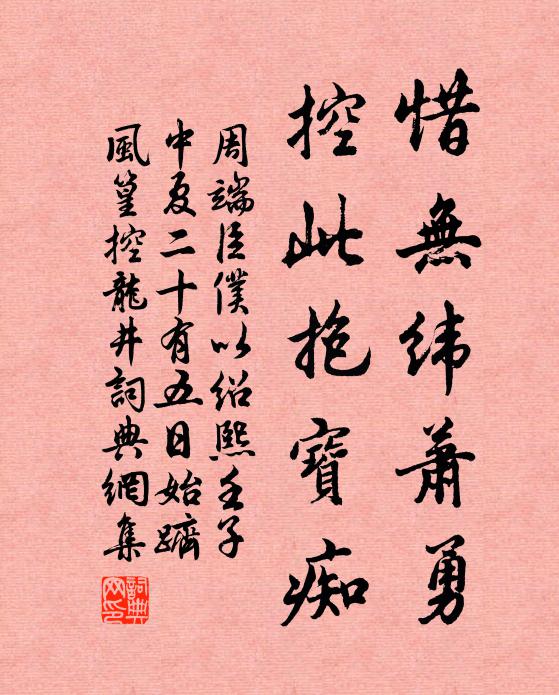 惜無緯蕭勇
控此抱寶痴
周端臣僕以紹熙壬子
中夏二十有五日始躋
風篁控龍井詞典網集
詞典網印